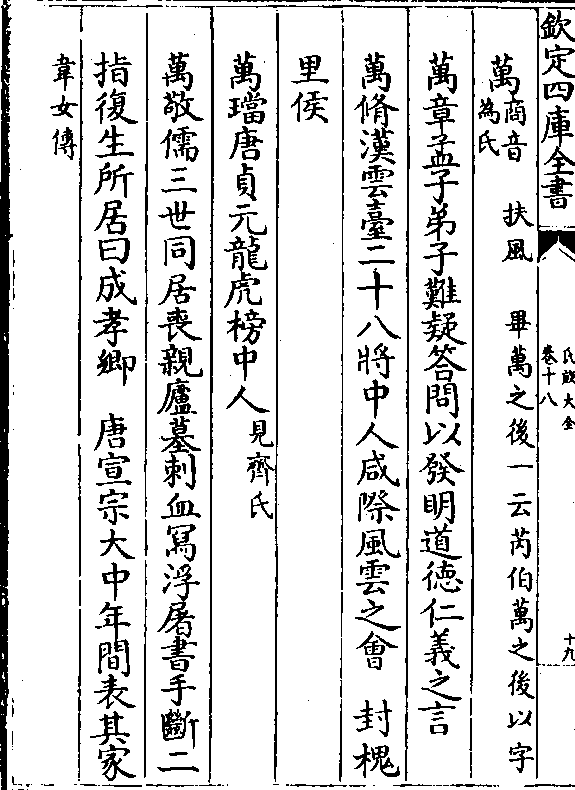 欽定四庫全書
氏族大全
卷十八
十九
萬 商音 扶風 畢萬之後一云芮伯萬之後以字
為氏
萬章孟子弟子難疑答問以發明道徳仁義之言
萬脩漢雲臺二十八將中人咸際風雲之會 封槐
里侯
萬璫唐貞元龍虎榜中人見齊氏
萬敬儒三世同居喪親廬墓刺血冩浮屠書手斷二
指復生所居曰成孝鄉 唐宣宗大中年間表其家
韋女傳